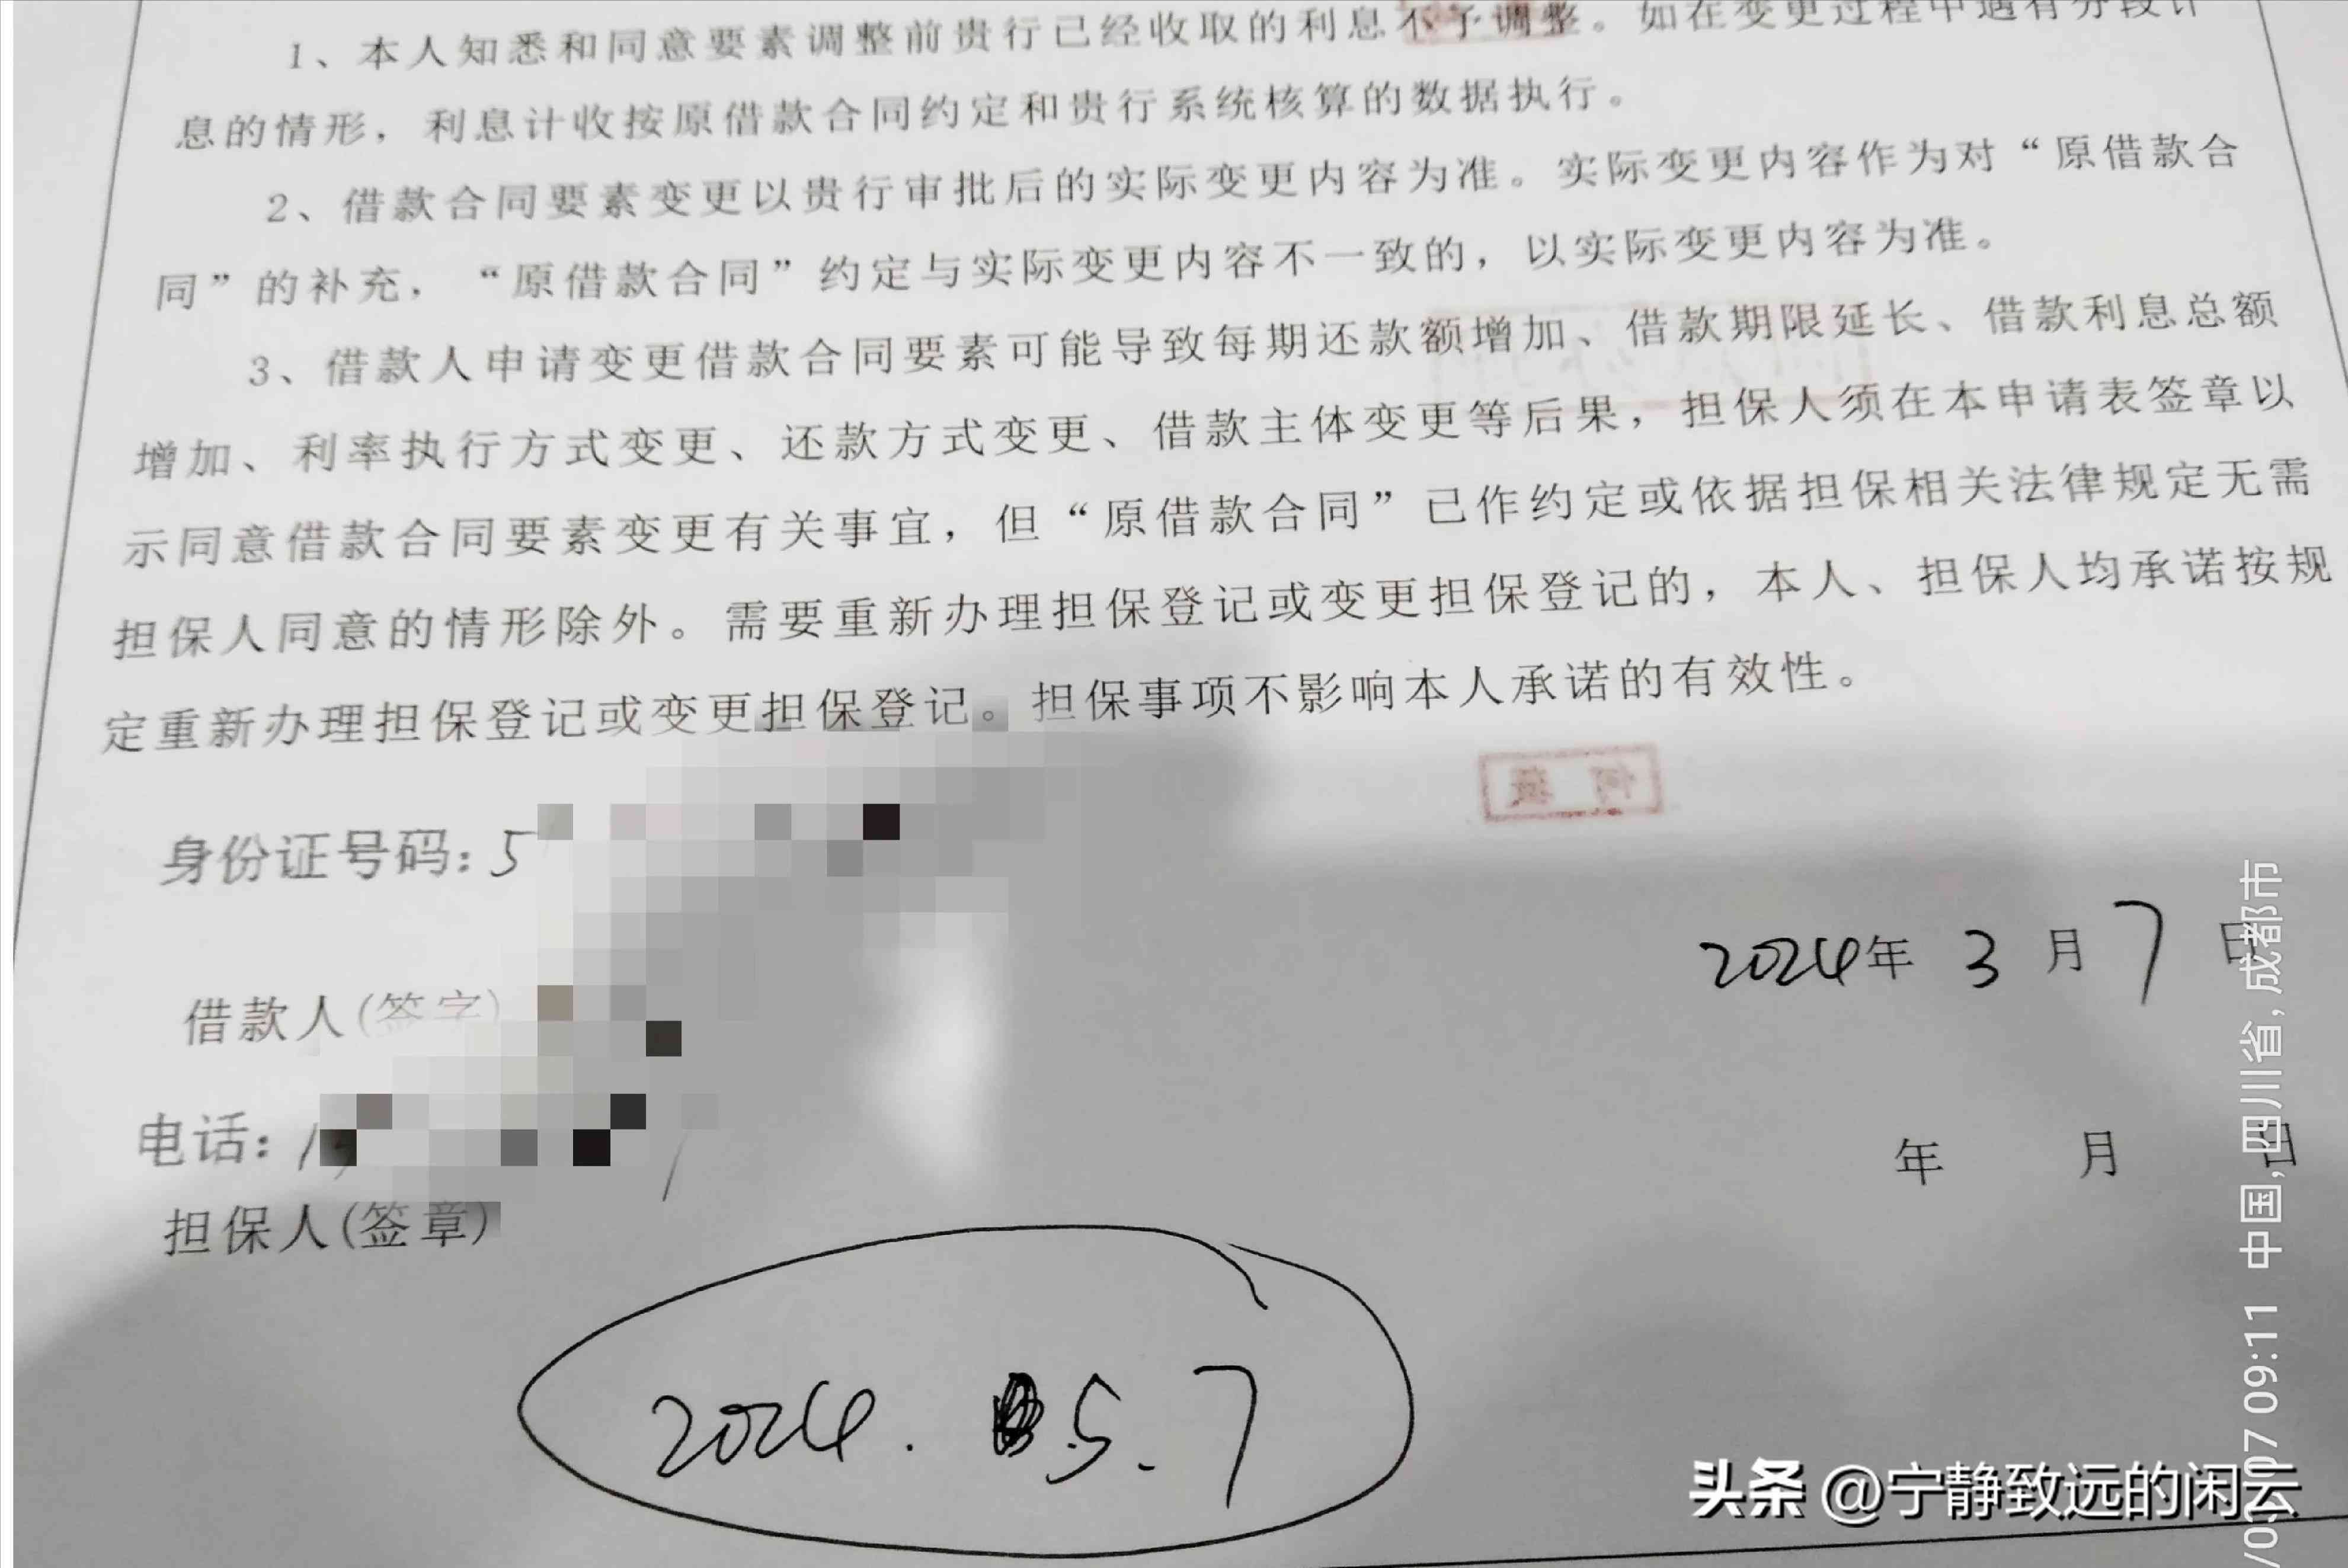 1、本人知悉和同意要素调整前贵行已经收取的利息不予调整。如在变更过程中遇有分段计
息的情形，利息计收按原借款合同约定和贵行系统核算的数据执行。
2、借款合同要素变更以贵行审批后的实际变更内容为准。实际变更内容作为对“原借款合
同”的补充，“原借款合同”约定与实际变更内容不一致的，以实际变更内容为准。
3、借款人申请变更借款合同要素可能导致每期还款额增加、借款期限延长、借款利息总额
增加、利率执行方式变更、还款方式变更、借款主体变更等后果，担保人须在本申请表签章以
示同意借款合同要素变更有关事宜，但“原借款合同”已作约定或依据担保相关法律规定无需
担保人同意的情形除外。需要重新办理担保登记或变更担保登记的，本人、担保人均承诺按规
定重新办理担保登记或变更担保登记。担保事项不影响本人承诺的有效性。
身份证号码：5
2024年 3 月 7 日
借款人(签字)
电话：1
年 月 日
担保人(签章)
2024. 5.7
/03/07 09:11 中国,四川省,成都市
头条 @宁静致远的闲云